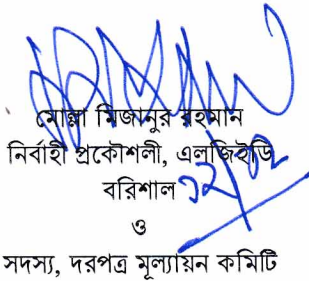 মোল্লা মিজানুর রহমান
নির্বাহী প্রকৌশলী, এলজিইডি
বরিশাল ১২/০২
ও
সদস্য, দরপত্র মূল্যায়ন কমিটি